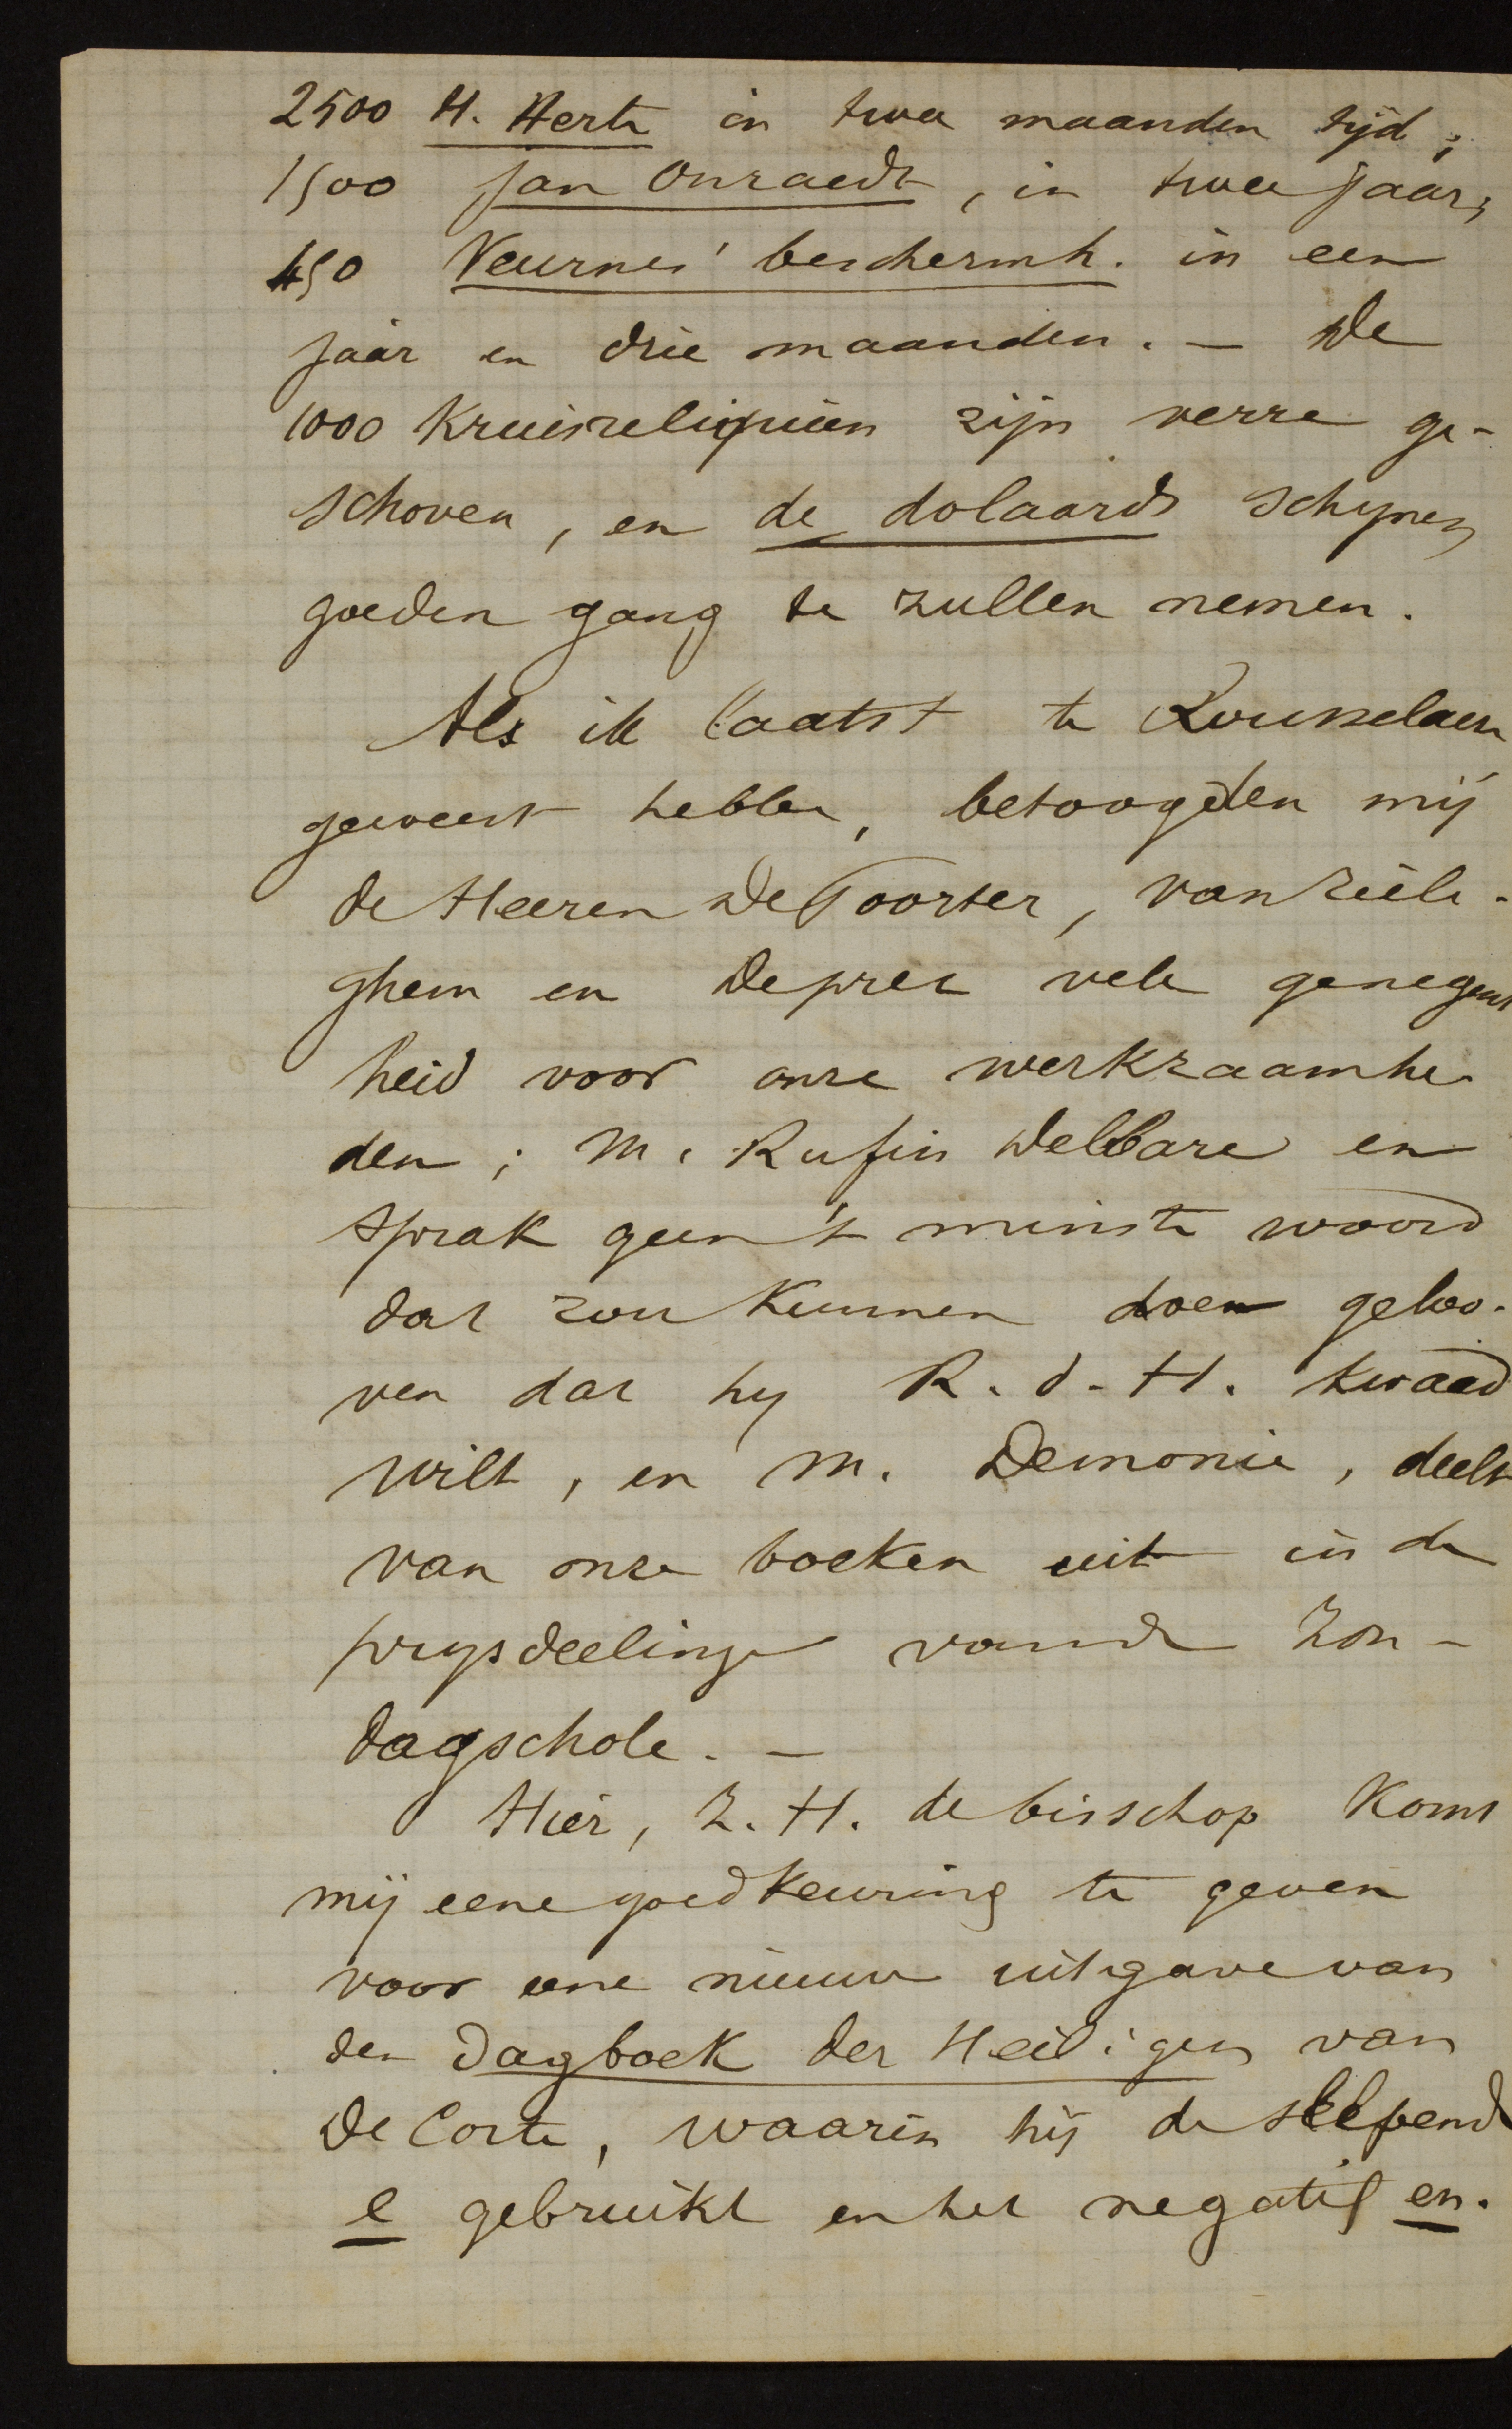 2500 H. Herte in twee maanden tijd;
1500 Jan Onraedt, in twee jaar;
450 Veurnes' beschermh. in een
jaar en drie maanden. — De
1000 Kruisreliquien zijn verre ge-
schoven, en de dolaards schynen
goeden gang te zullen nemen.
Als ik laatst te Rousselaere
geweest hebbe, betoogden mij
de Heeren DePoorter, van Zeele-
ghem en Deprez vele genegent
heid voor onze werkzaamhe-
den; M. Rufin Delbare en
sprak geen 't minste woord
dat zou kunnen doen geloo-
ven dat hy R. d. H. kwaad
wilt, en M. Demonie, deelt
van onze boeken uit in de
prysdeelinge vande Zon-
dagschole. —
Hier, Z. H. de bisschop komt
mij eene goedkeuring te geven
voor eene nieuwe uitgave van
den Dagboek der Heiligen van
De Corte, waarin hij de sleepende
e gebruikt en het negatif en.